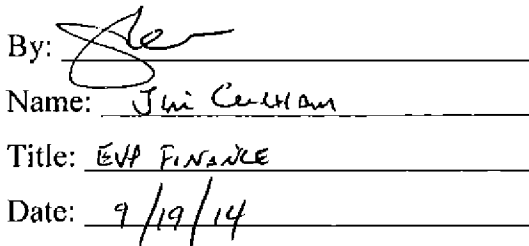 By:
Name: Jim
Title: EVP FINANCE
Date: 9/19/14